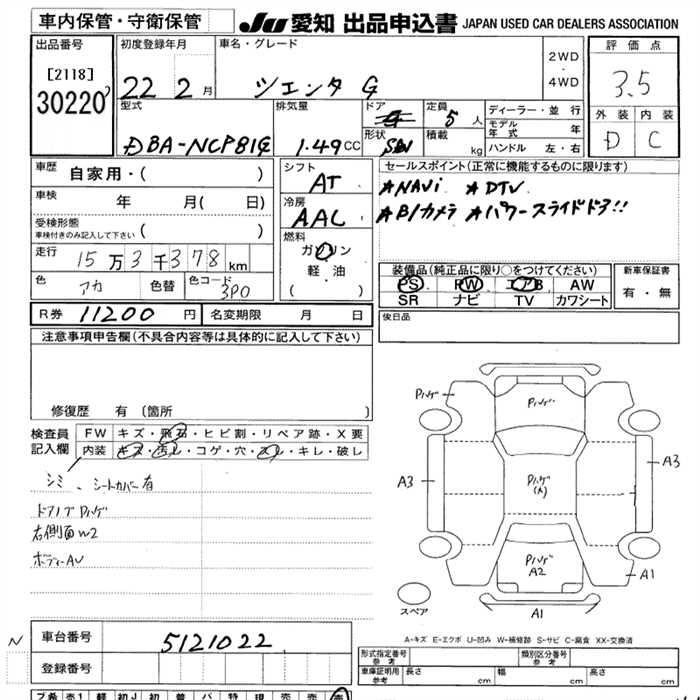 車内保管・守衛保管
JU 愛知 出品申込書 JAPAN USED CAR DEALERS ASSOCIATION
出品番号
[2118]
30220
初度登録年月
22 2 月
車名・グレード
ツエンタ G
2WD
・
4WD
評価点
3.5
外装 内装
D C
型式
DBA-NCP81G
排気量
1.49 CC
ドア
形状
SW
定員
5 人
積載
kg
ディーラー・並行
モデル年式 年
ハンドル 左・右
車歴
自家用・( )
車検
年 月( 日)
受検形態
車検付きのみ記入して下さい ( )
走行
15万3千378 km
色
アカ
色替
色コード
3P0
シフト
AT
冷房
AAC
燃料
ガソリン
軽・油
( )
セールスポイント(正常に機能するものに限ります)
★NAVi ★DTV
★B/カメラ ★パワースライドドア!!
装備品(純正品に限り○をつけてください)
PS PW エアB AW
SR ナビ TV カワシート
新車保証書
有・無
R券 11200 円
名変期限 月 日
後日品
注意事項申告欄(不具合内容等は具体的に記入して下さい)
修復歴 有(箇所 )
検査員
記入欄
FW キズ・飛石・ヒビ割・リペア跡・X要
内装 キズ・汚レ・コゲ・穴・スレ・キレ・破レ
シミ、シートカバー有
ドアノブPハゲ
右側面W2
ボディーAU
Pハゲ
Pハゲ
A3
Pハゲ
(大)
A3
Pハゲ
A2
A1
A1
スペア
A-キズ E-エクボ U-凹み W-補修跡 S-サビ C-腐食 XX-交換済
N
車台番号
5121022
登録番号
形式指定番号
参考
類別区分番号
参考
車庫証明用
参考
長さ cm 幅 cm 高さ cm